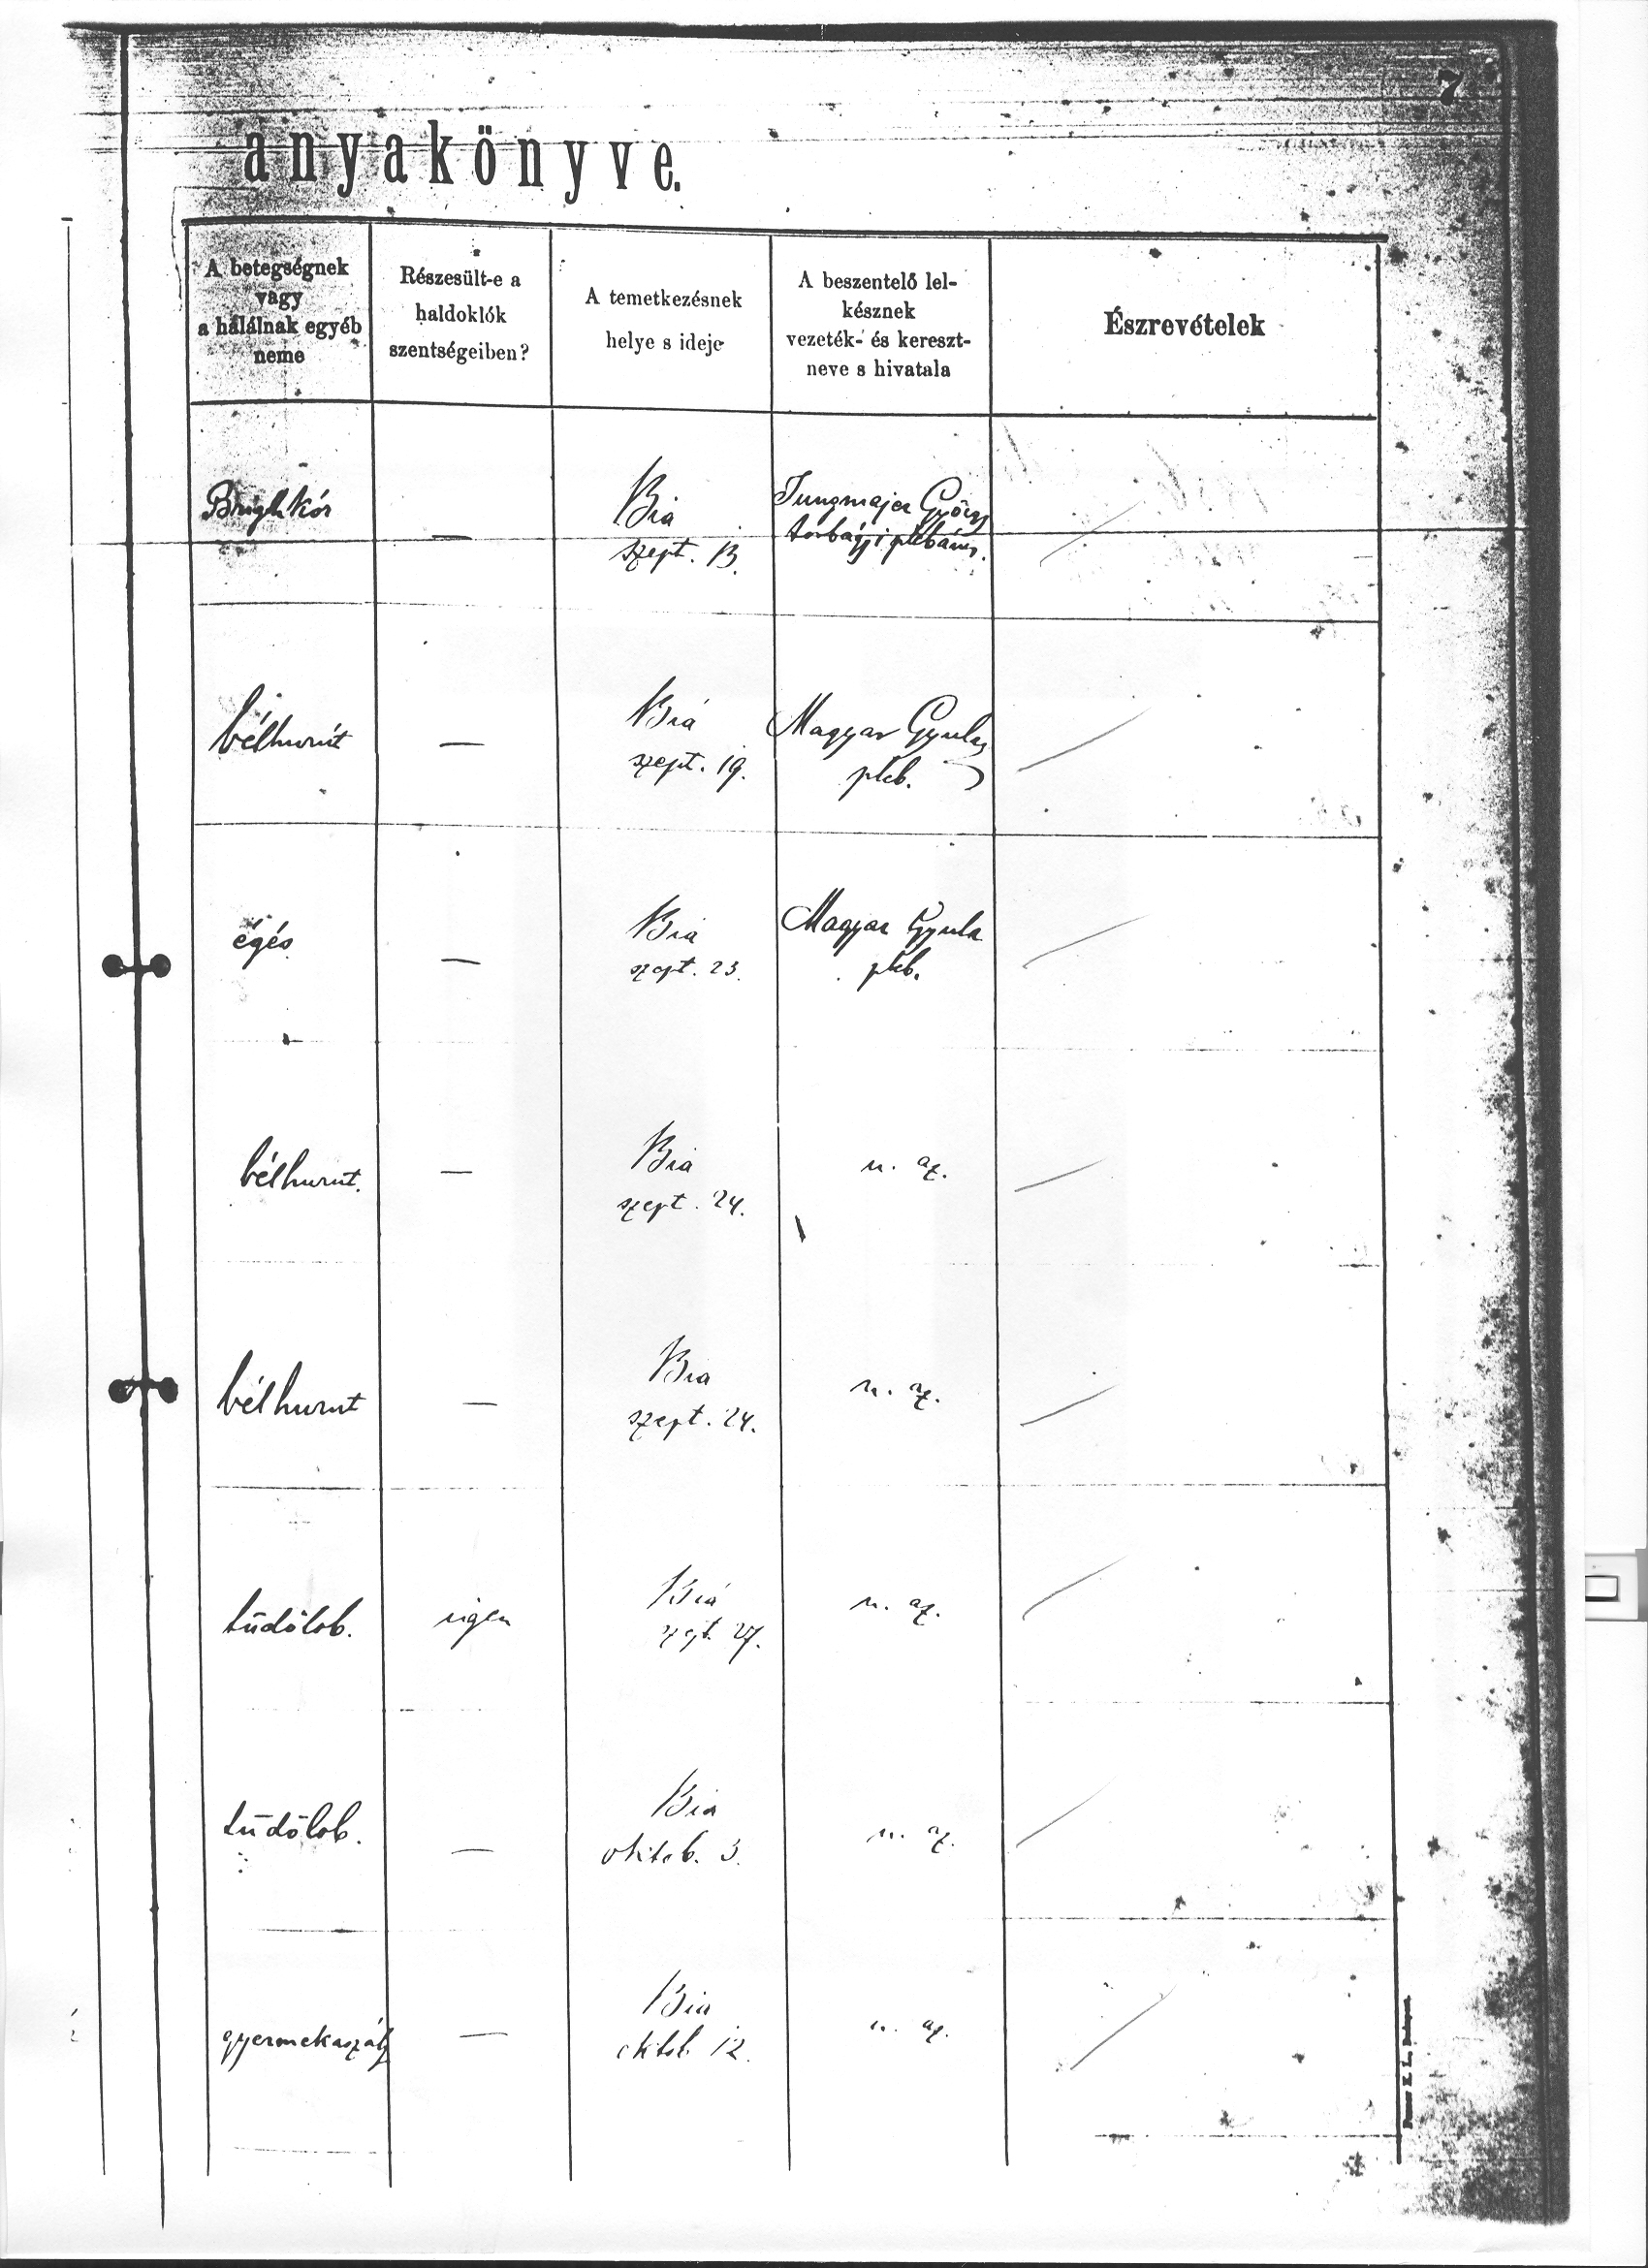 7
anyakönyve.
A betegségnek
vagy
a halálnak egyéb
neme
Részesült-e a
haldoklók
szentségeiben?
A temetkezésnek
helye s ideje
A beszentelő lel-
késznek
vezeték- és kereszt-
neve s hivatala
Észrevételek
Brigh kór
—
Bia
szept. 13.
Jungmajer György
torbágyi plébános.
bélhurút
—
Biá
szept. 19.
Magyar Gyula
pleb.
égés
—
Bia
szept. 23.
Magyar Gyula
pleb.
bélhurut.
—
Bia
szept. 24.
u. az.
bélhurut
—
Bia
szept. 24.
u. az.
tüdőlob.
igen
Biá
szept. 27.
u. az.
tüdőlob.
—
Bia
oktob. 3.
u. az.
gyermekaszály
—
Bia
oktob. 12.
u. az.